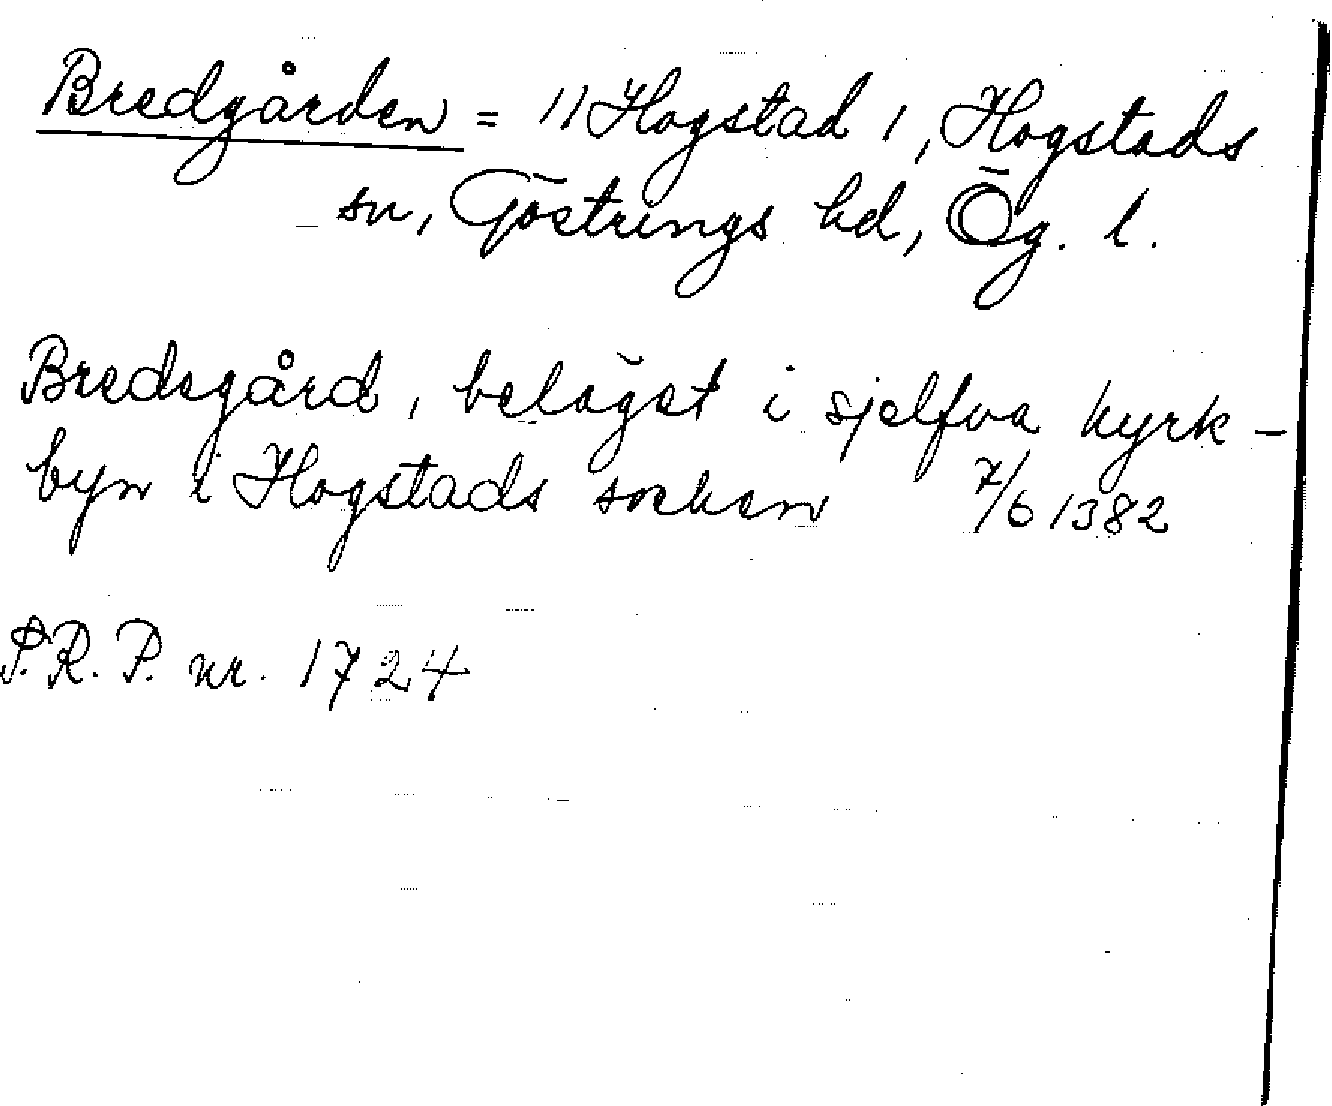 Bredgården = 11 Hogstad 1, Hogstads
sn, Göstrings hd, Ög. l.
Bredsgård, belägst i sjelfva kyrk-
byn i Hogstads socken 7/6 1382
S.R.P. nr. 1724